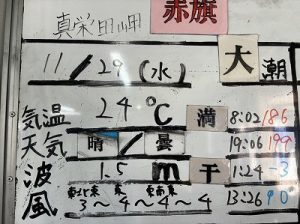 赤旗
真栄田岬
11/29(水) 大潮
気温 24℃ 満 8:02 186
天気 晴/曇 19:06 199
波 1.5m 干 1:24 -3
風 東北東 東 東南東 13:26 90
3~4~4~4